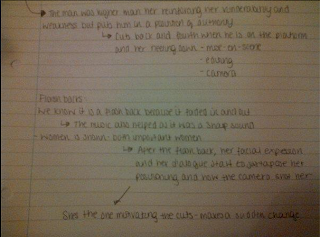 The man was higher than her reinforcing her vulnerability and
weakness but puts him in a position of authority.
↳ Cuts back and fourth when he is at the platform
and her sitting down - mise-en-scene
- Editing
- Camera
Flash backs
We know it is a flash back because it faded in and out
↳ The music also helped as it was a sharp sound
- Women is shown - both important women
↳ After the flash back, her facial expression
and her dialogue start to juxtapose her
positioning and how the camera shot her
She's the one motivating the cuts - makes a sudden change